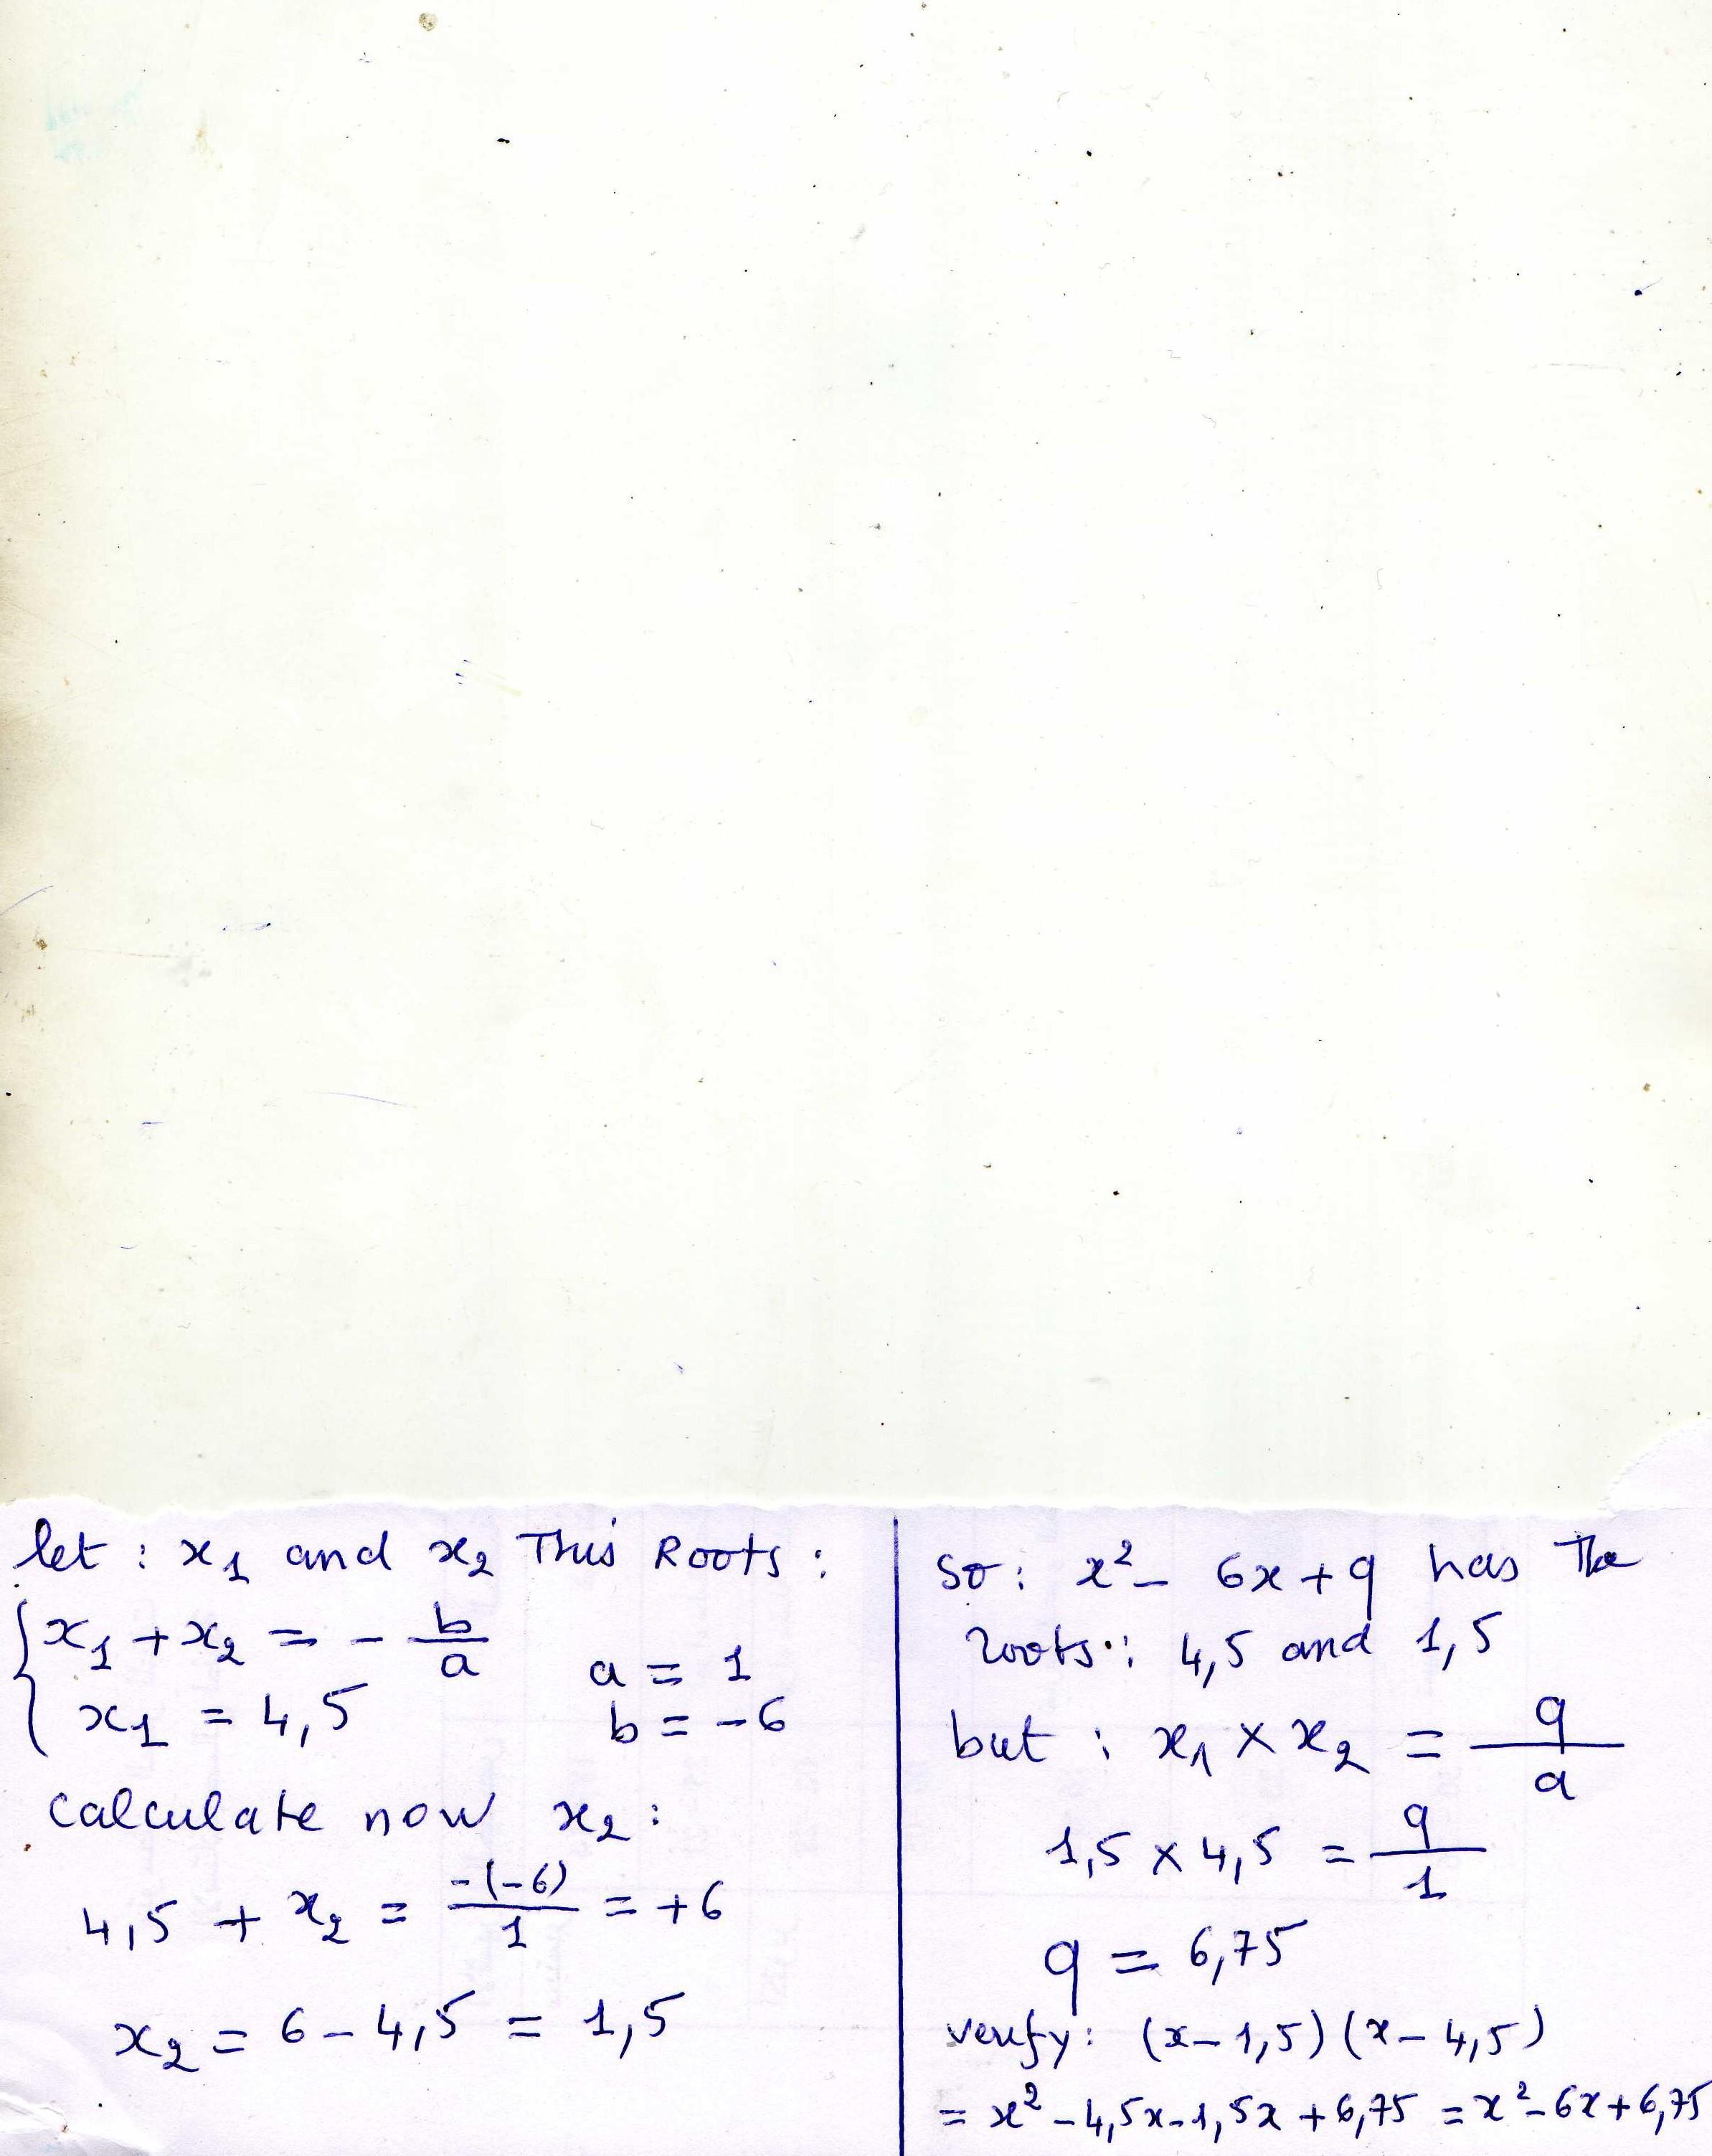 let : x₁ and x₂ This Roots :
x₁ + x₂ = - b/a
a = 1
x₁ = 4,5
b = -6
calculate now x₂ :
4,5 + x₂ = -(-6)/1 = +6
x₂ = 6 - 4,5 = 1,5
so : x² - 6x + q has the
roots : 4,5 and 1,5
but : x₁ × x₂ = q/a
1,5 × 4,5 = q/1
q = 6,75
verify : (x - 1,5) (x - 4,5)
= x² - 4,5x - 1,5x + 6,75 = x² - 6x + 6,75